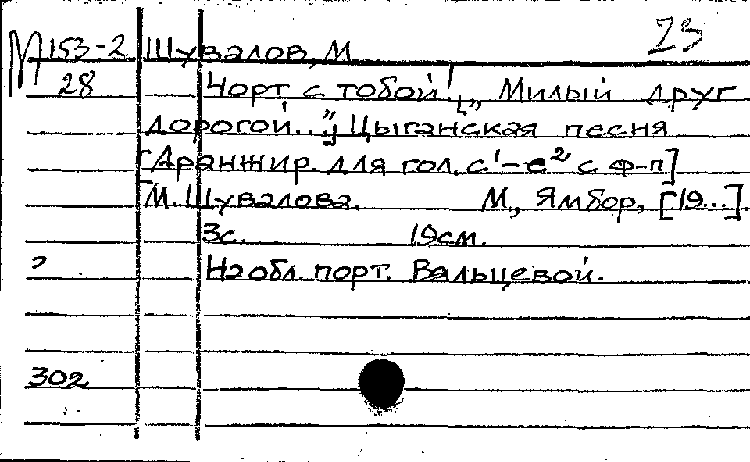 23
М 153-2 Шувалов, М
28 Чорт с тобой! [„Милый друг
дорогой..."] Цыганская песня
[Аранжир. для гол. c¹-e² с ф-п]
М. Шувалова. М., Ямбор, [19...].
3с. 19см.
? На обл. порт. Вальцевой.
302